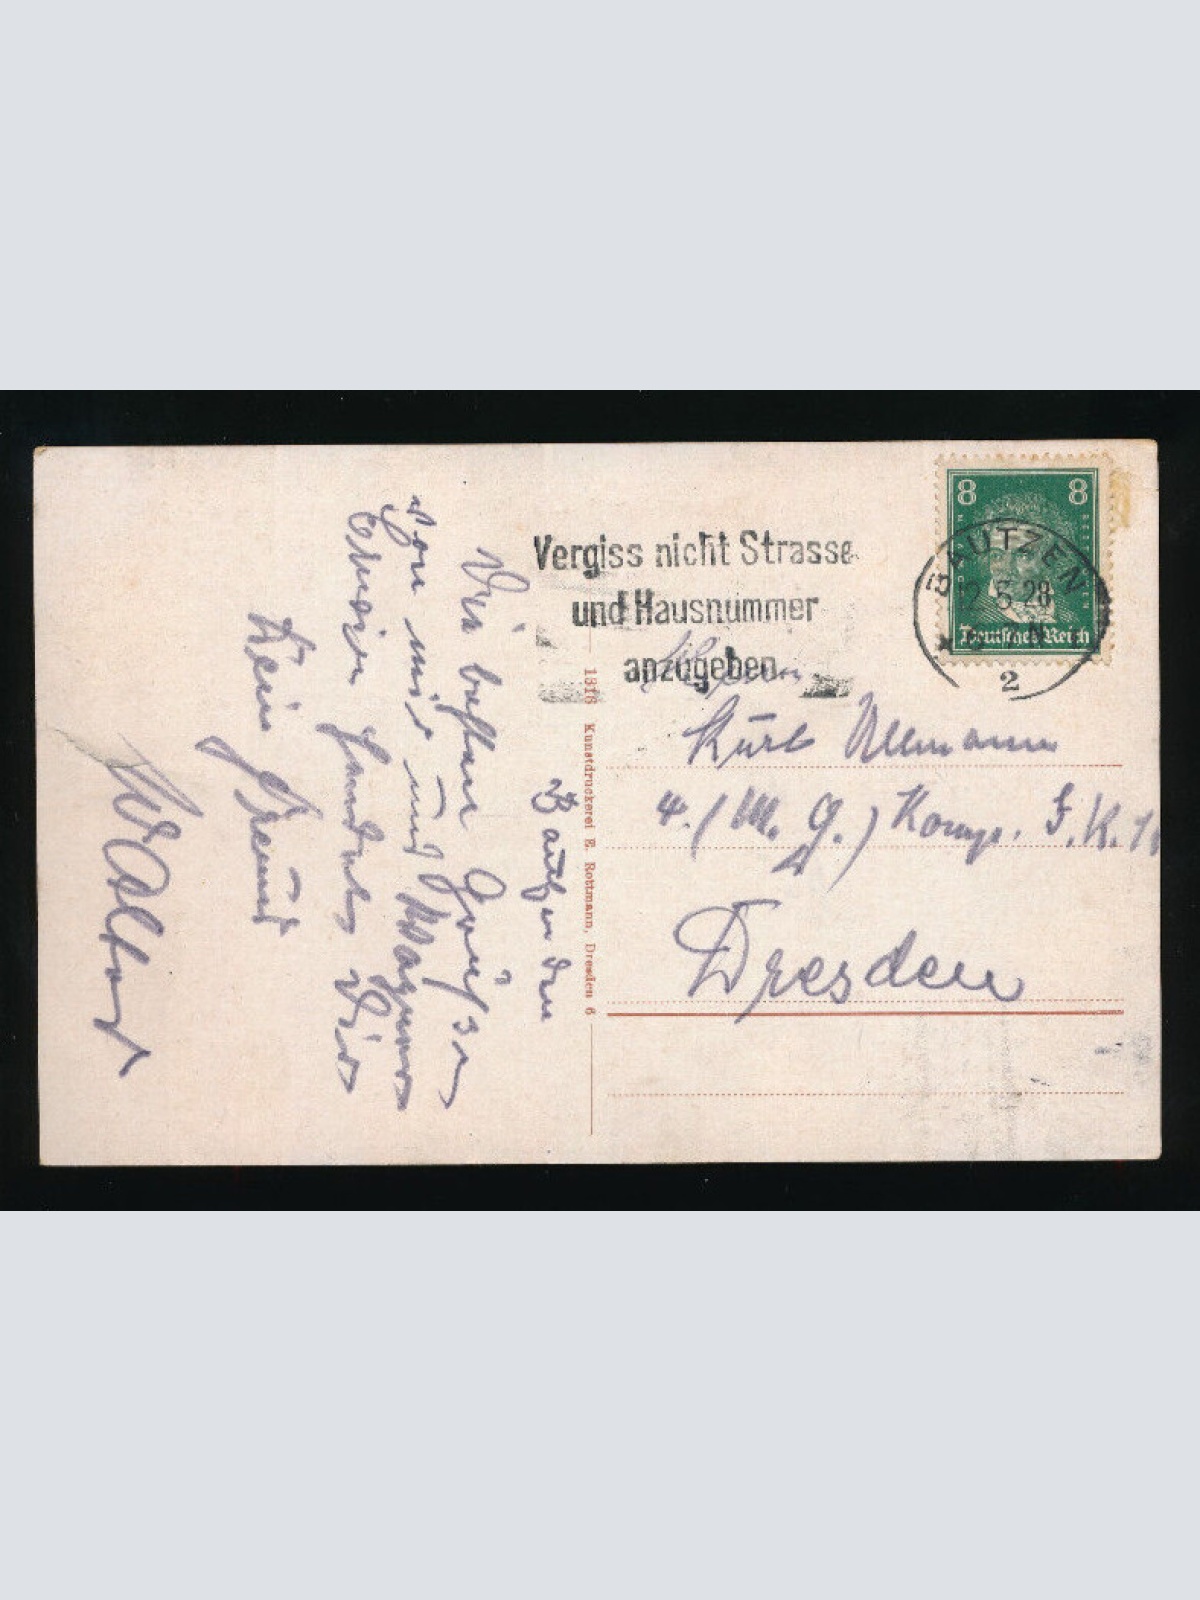 Vergiss nicht Strasse
und Hausnummer
anzugeben
8 8
Deutsches Reich
BAUTZEN
12.5.28
2
Herrn
Kurt Ullmann
4. (M. G.) Komp. J. R. 1
Dresden
1316 Kunstdruckerei E. Rottmann, Dresden 6
Bautzen den
Die besten Grüße
von mir und
Erwin sendet Dir
Dein Freund